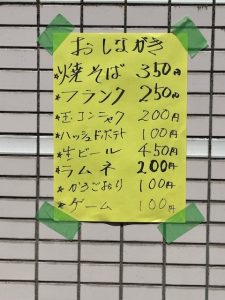 おしながき
*焼そば 350円
*フランク 250円
*玉コンニャク 200円
*ハッシュドポテト 100円
*生ビール 450円
*ラムネ 200円
*かきごおり 100円
*ゲーム 100円